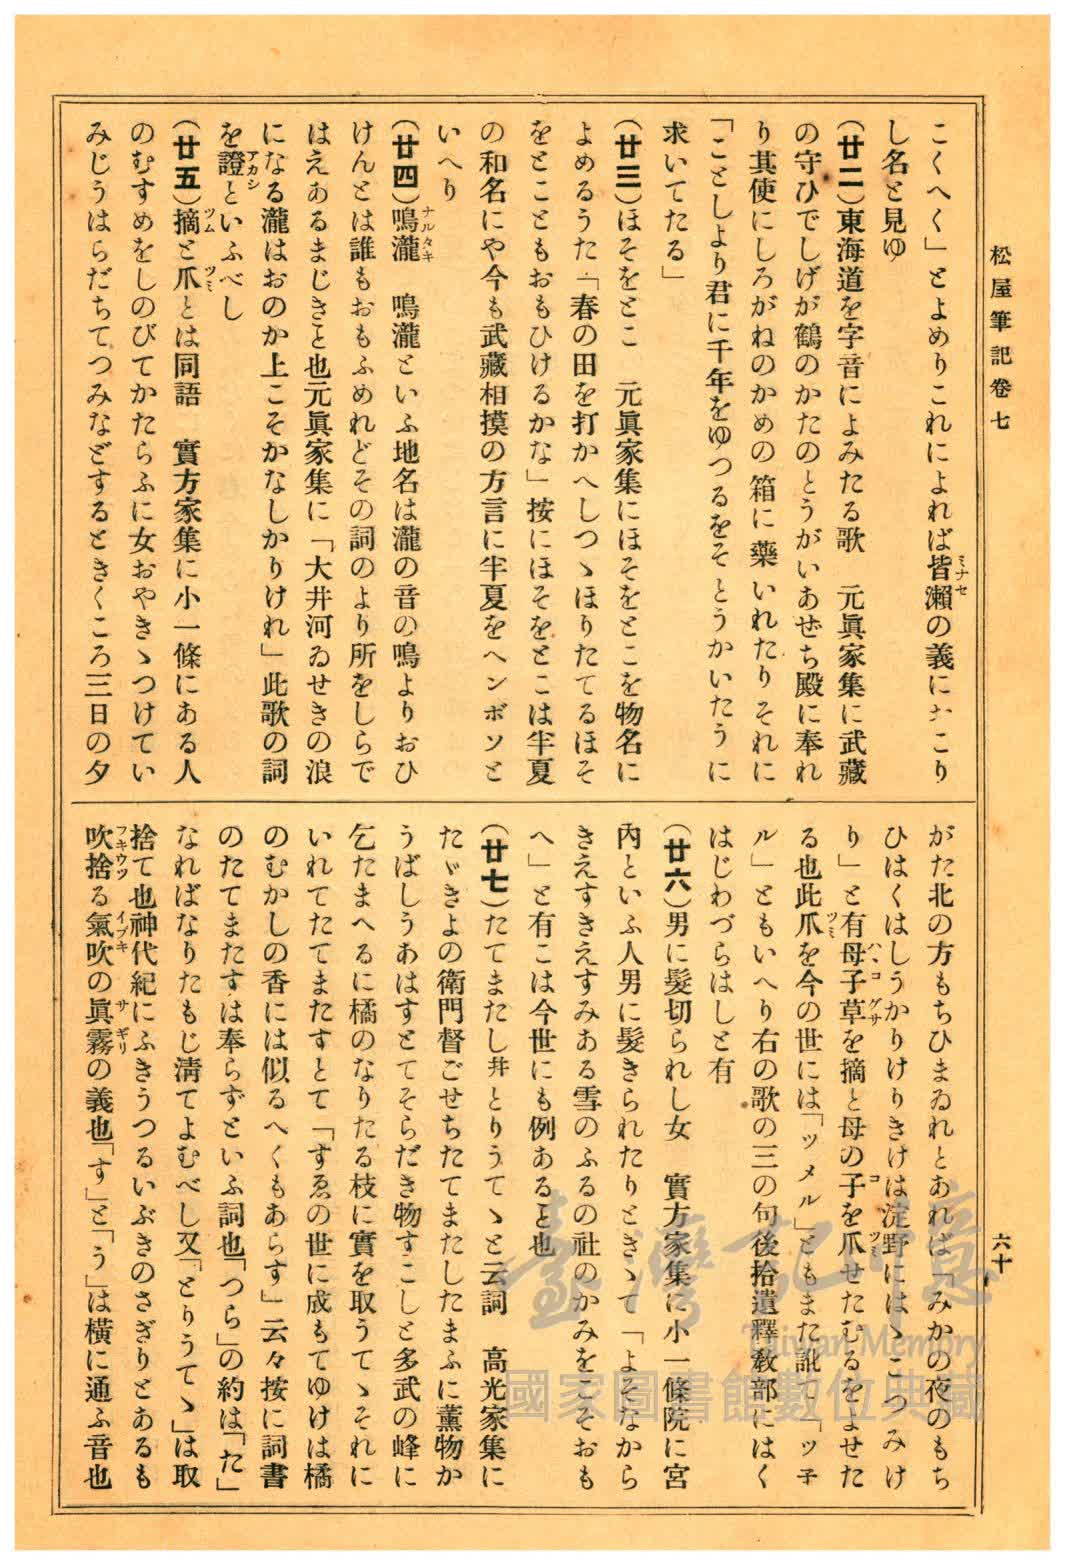 松屋筆記卷七
六十
こくへく」とよめりこれによれば皆瀨の義におこり
ミナセ
し名と見ゆ
(廿二)東海道を字音によみたる歌　元眞家集に武藏
の守ひでしげが鶴のかたのとうがいあぜち殿に奉れ
り其使にしろがねのかめの箱に藥いれたりそれに
「ことしより君に千年をゆつるをそとうかいたうに
求いてたる」
(廿三)ほそをとこ　元眞家集にほそをとこを物名に
よめるうた「春の田を打かへしつゝほりたてるほそ
をとこともおもひけるかな」按にほそをとこは半夏
の和名にや今も武藏相摸の方言に半夏をヘンボソと
いへり
(廿四)鳴瀧　鳴瀧といふ地名は瀧の音の鳴よりおひ
ナルタキ
けんとは誰もおもふめれどその詞のより所をしらで
はえあるまじきと也元眞家集に「大井河ゐせきの浪
になる瀧はおのか上こそかなしかりけれ」此歌の詞
を證といふべし
アカシ
(廿五)摘と爪とは同語　實方家集に小一條にある人
ツム　ツミ
のむすめをしのびてかたらふに女おやきゝつけてい
みじうはらだちてつみなどするときくころ三日の夕
がた北の方もちひまゐれとあれば「みかの夜のもち
ひはくはしうかりけりきけは淀野にはゝこつみけ
り」と有母子草を摘と母の子を爪せたむるをよせた
ハヽコグサ　コ　ツミ
る也此爪を今の世には「ツメル」ともまた訛て「ツ子
ツミ
ル」ともいへり右の歌の三の句後拾遺釋敎部にはく
はじわづらはしと有
(廿六)男に髮切られし女　實方家集に小一條院に宮
內といふ人男に髮きられたりときゝて「よそなから
きえすきえすみある雪のふるの社のかみをこそおも
へ」と有こは今世にも例あると也
(廿七)たてまたし幷とりうてゝと云詞　高光家集に
たゞきよの衛門督ごせちたてまたしたまふに薰物か
うばしうあはすとてそらだき物すこしと多武の峰に
乞たまへるに橘のなりたる枝に實を取うてゝそれに
いれてたてまたすとて「すゑの世に成もてゆけは橘
のむかしの香には似るへくもあらす」云々按に詞書
のたてまたすは奉らずといふ詞也「つら」の約は「た」
なればなりたもじ淸てよむべし又「とりうてゝ」は取
捨て也神代紀にふきうつるいぶきのさぎりとあるも
吹捨る氣吹の眞霧の義也「す」と「う」は橫に通ふ音也
フキウツ　イブキ　サギリ
臺灣記憶
Taiwan Memory
國家圖書館數位典藏